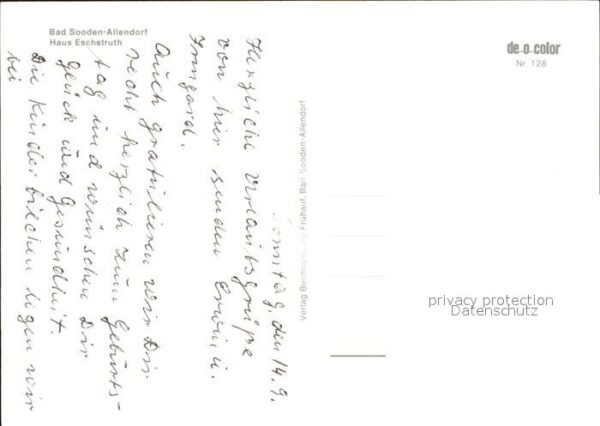 Bad Sooden-Allendorf
Haus Eschstruth
de-o-color
Nr. 128
Verlag Buchhandlung Frühauf, Bad Sooden-Allendorf
Sonntag, den 14.9.
Herzliche Urlaubsgrüße
von hier senden Erwin u.
Irmgard.
Auch gratulieren wir Dir
recht herzlich zum Geburts-
tag und wünschen Dir
Glück und Gesundheit.
Die Kinderbildchen legen wir
bei
privacy protection
Datenschutz